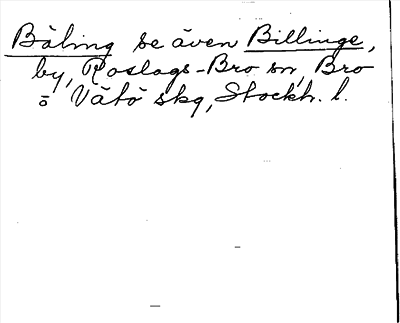 Bäling se även Billinge,
by, Roslags-Bro sn, Bro
o Vätö skg, Stockh. l.